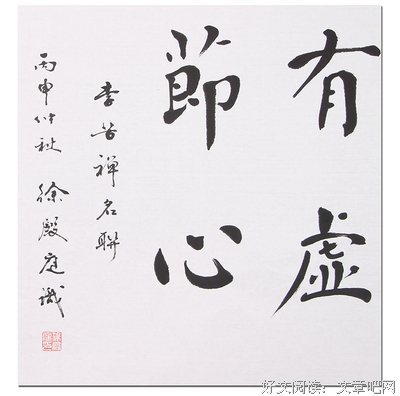 有節
虚心
李苦禅名聯
丙申仲秋 徐殿庭識
好文阅读：文章吧网